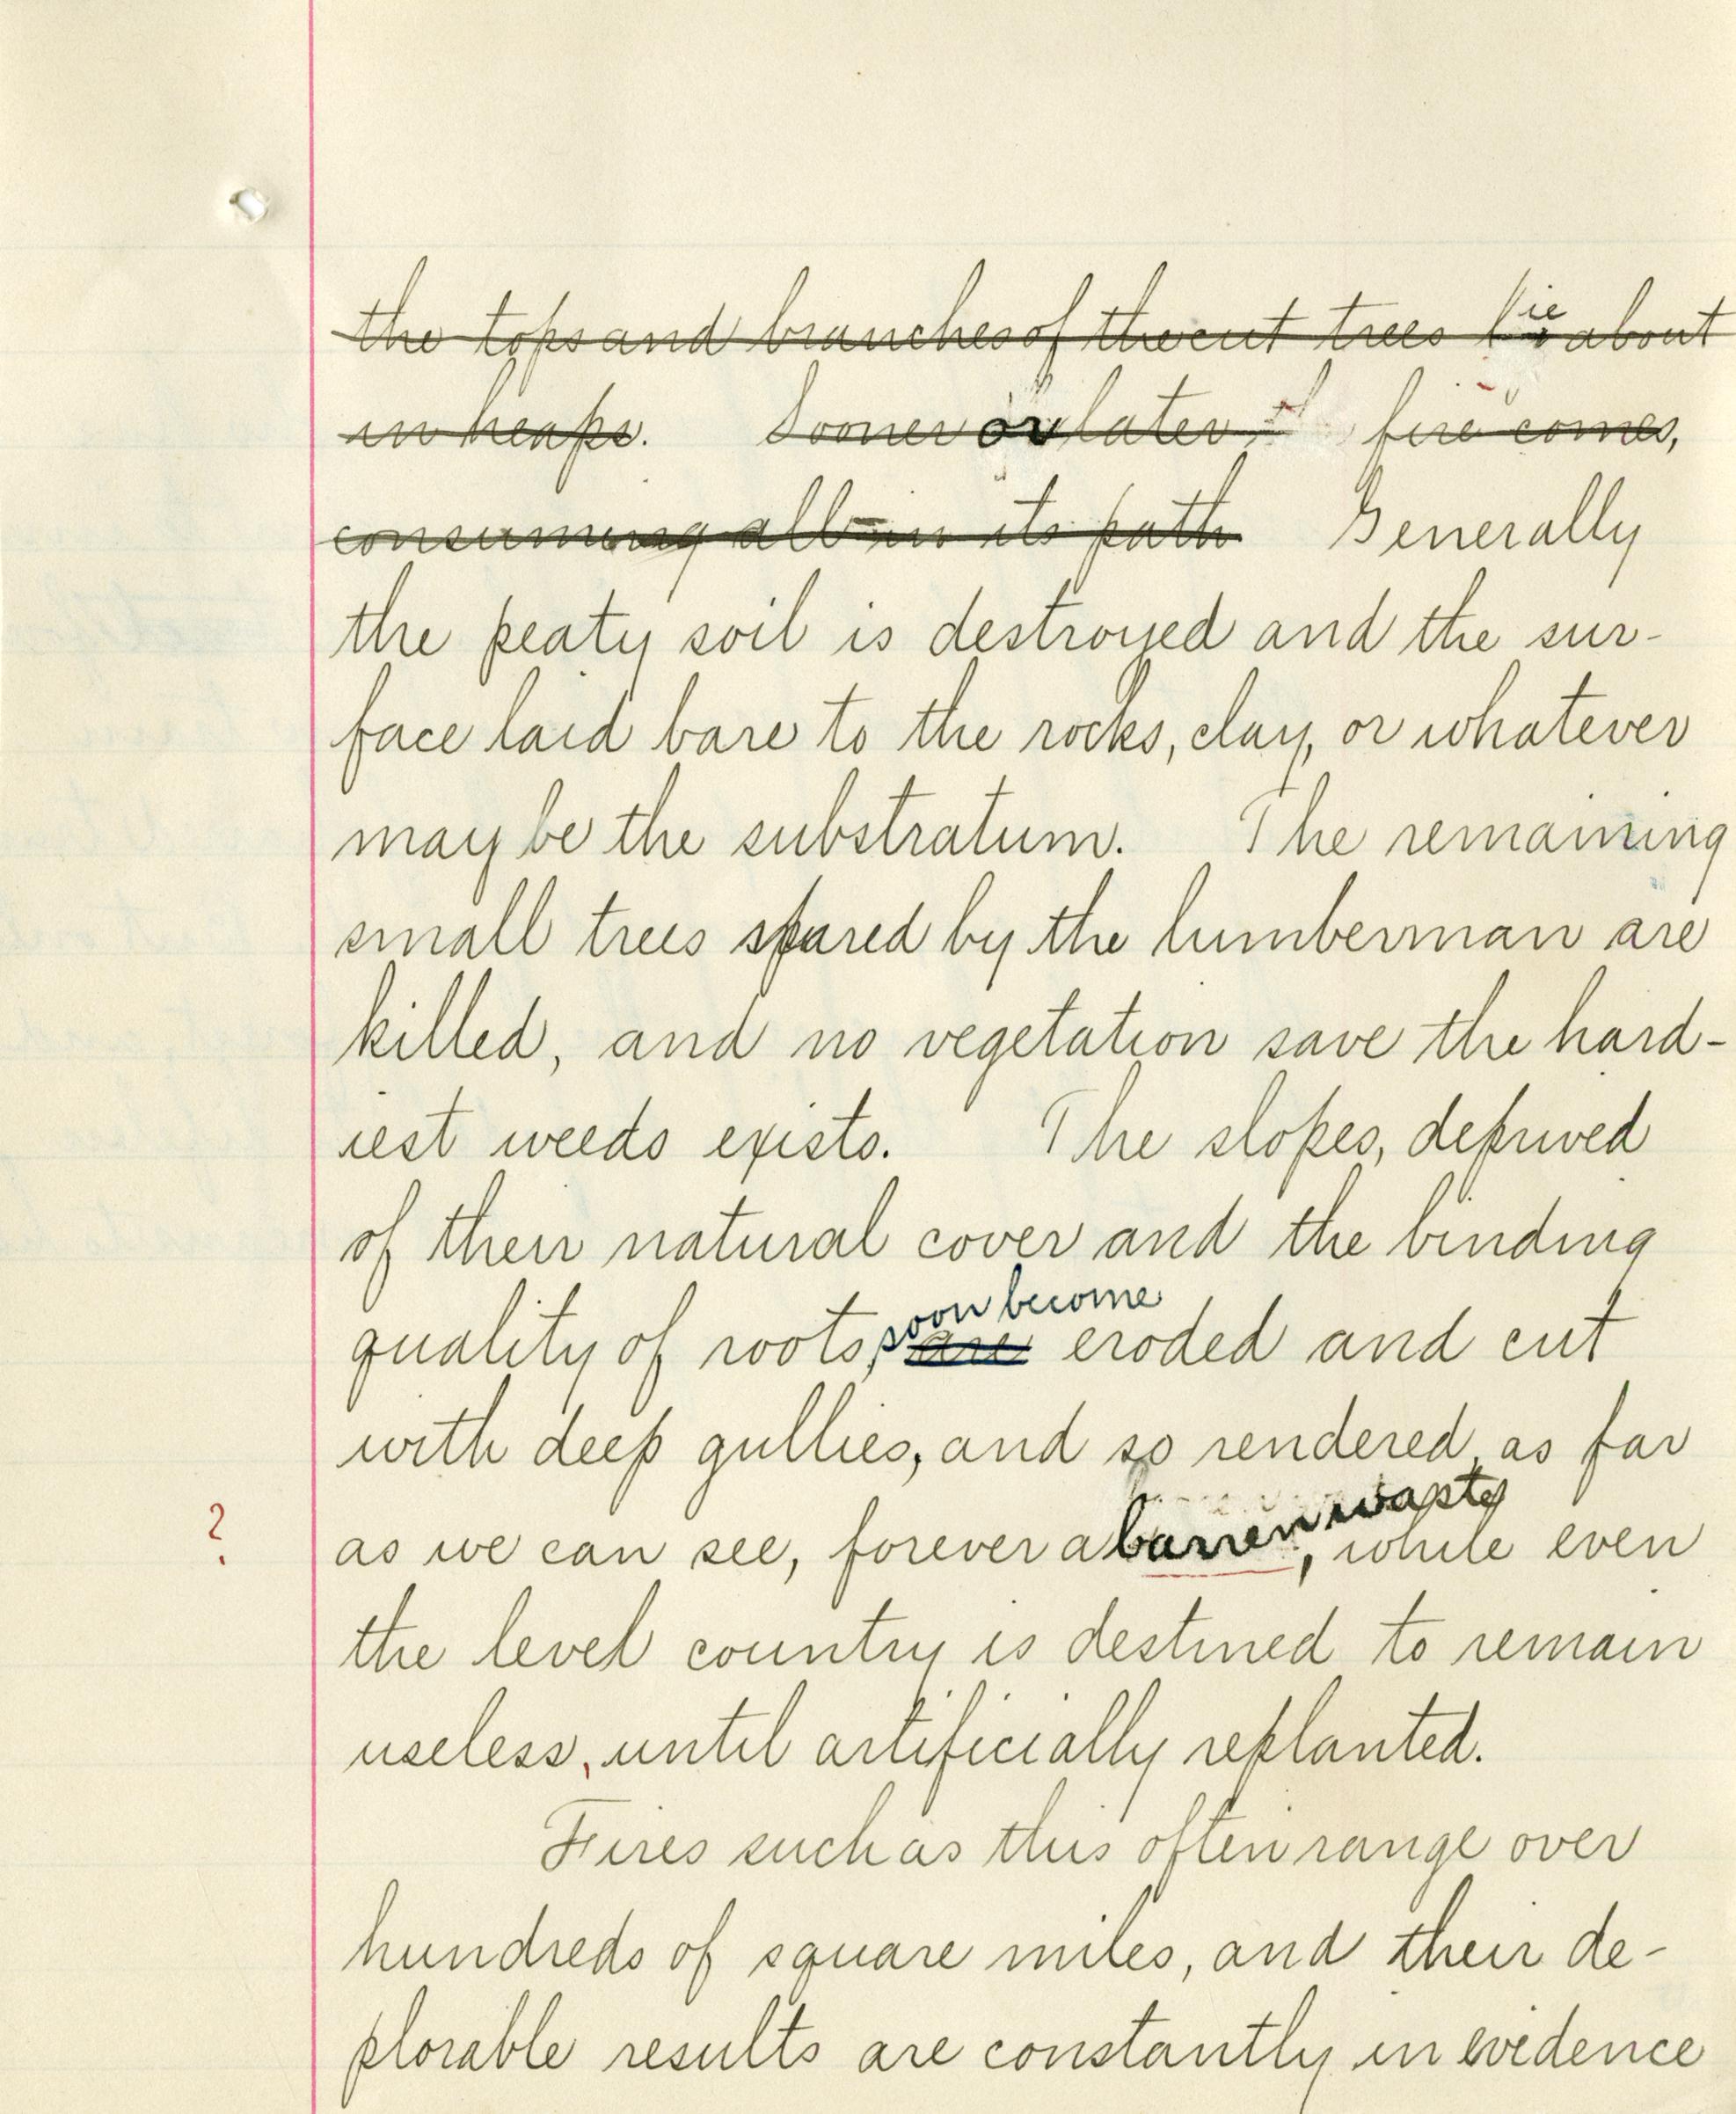 the tops and branches of the cut trees lie about
in heaps. Sooner or later fire comes,
consuming all in its path Generally
the peaty soil is destroyed and the sur-
face laid bare to the rocks, clay, or whatever
may be the substratum. The remaining
small trees spared by the lumberman are
killed, and no vegetation save the hard-
iest weeds exists. The slopes, deprived
of their natural cover and the binding
soon become
quality of roots, are eroded and cut
with deep gullies, and so rendered, as far
waste
? as we can see, forever a barren, while even
the level country is destined to remain
useless, until artificially replanted.
Fires such as this often range over
hundreds of square miles, and their de-
plorable results are constantly in evidence